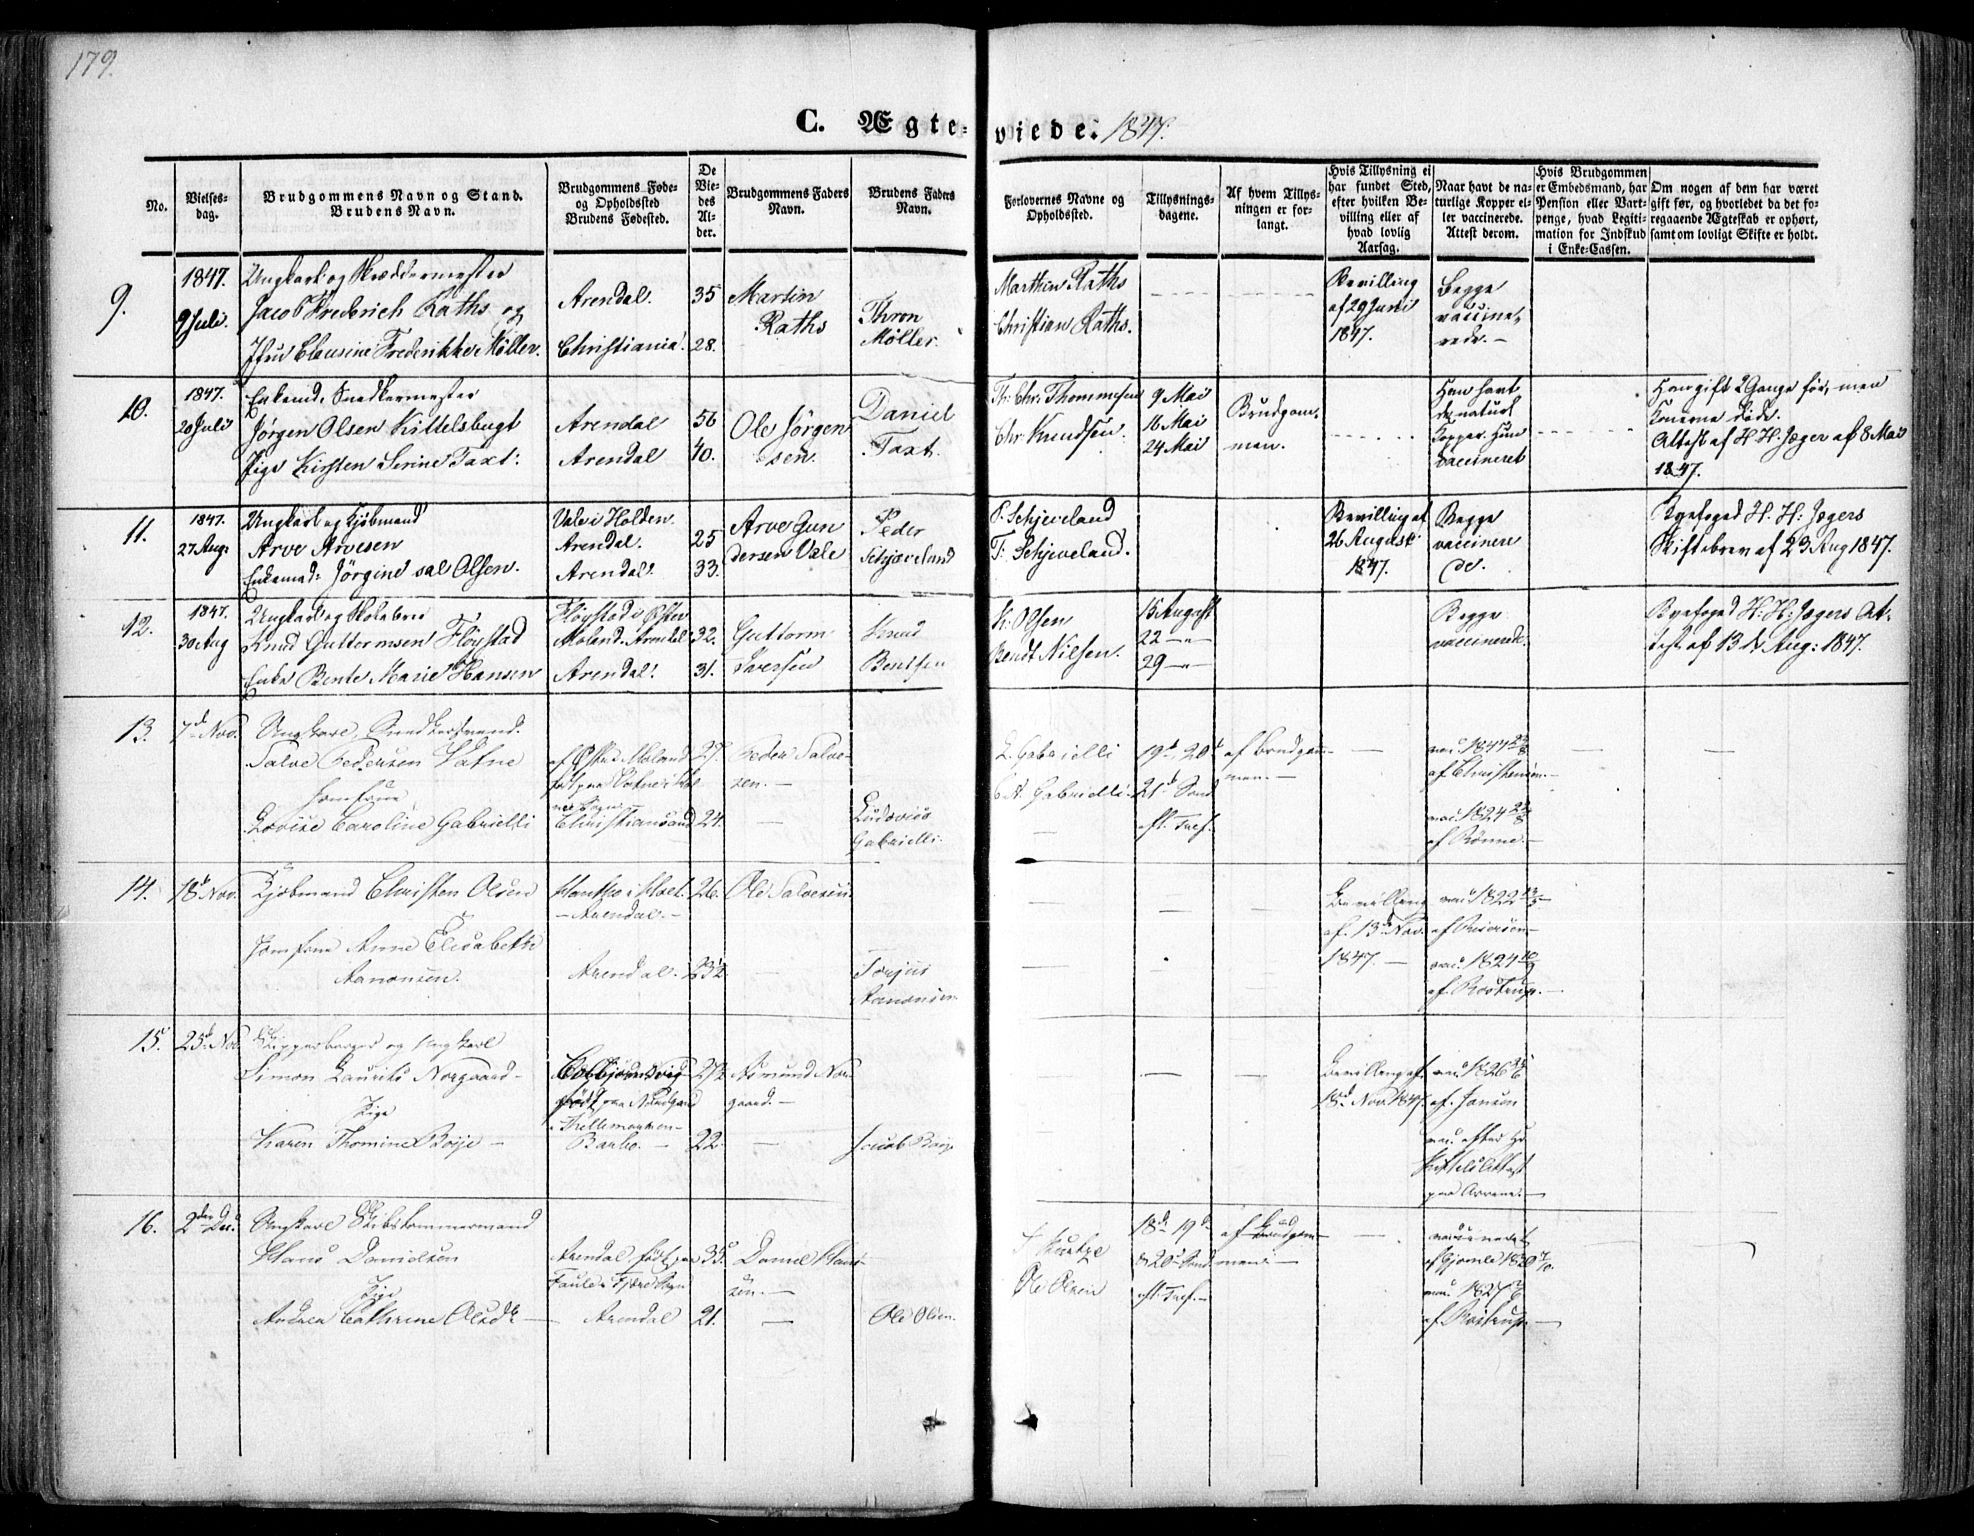 179.
C. Ægteviede. 1847.
No.
Vielsesdag.
Brudgommens Navn og Stand.
Brudens Navn.
Brudgommens Føde- og Opholdsted
Brudens Fødested.
De Viedes Alder.
Brudgommens Faders Navn.
Brudens Faders Navn.
Forlovernes Navne og Opholdsted.
Tillysningsdagene.
Af hvem Tillysningen er forlangt.
Hvis Tillysning ei har fundet Sted, efter hvilken Bevilling eller af hvad lovlig Aarsag.
Naar havt de naturlige Kopper eller vaccinerede. Attest derom.
Hvis Brudgommen er Embedsmand, har Pension eller Vartpenge, hvad Legitimation for Indskud i Enke-Cassen.
Om nogen af dem har været gift før, og hvorledet da det foregaaende Ægteskab er ophørt, samt om lovligt Skifte er holdt.
9.
1847.
9 Juli.
Ungkarl og Skræddermester
Jacob Frederich Raths og
Jfru Clausine Frederikke Møller.
Arendal.
Christiania.
35
28.
Martin
Raths
Thron
Møller.
Marthin Raths
Christian Raths.
Bevilling
af 29 Juni
1847.
Begge
vaccine-
rede.
10.
1847.
20 Juli
Enkemd. Snedkermester
Jørgen Olsen Kittelsbugt
Pige Kirsten Serine Taxt.
Arendal
Arendal
56
40.
Ole Jørgen
sen.
Daniel
Taxt.
Th: Chr: Thommesen
Chr. Knudsen.
9 Mai
16 Mai
24 Mai
Brudgom-
men.
Han havt
de naturl
Kopper. Hun
vaccineret
Han gift 2 Gange før, men
Konerne døde.
Attest af H. H. Jæger af 8 Mai
1847.
11.
1847.
27 Aug.
Ungkarl og Kjøbmand
Arve Arvesen
Enkemad: Jørgine sal Olsen.
Vale i Holden.
Arendal.
Arendal.
25
33.
Arve Gun
dersen Vale
Peder
Schjeveland
P. Schjeveland
T. Schjeveland.
Bevilling af
26 August
1847.
Begge
vaccinere
de.
Byefoged H: H: Jægers
Skiftebrev af 23 Aug 1847.
12.
1847.
30 Aug
Knud Guttormsen Fløystad
Enke Bente Marie Hansen
Fløystad i Øster
Moland. Arendal
Arendal.
32.
31.
Guttorm
Iversen
Knud
Bentsen
K. Olsen
Bendt Nielsen.
15 August
22 — " —
29 — " —
Begge
vaccinerede.
Byefoged H: H: Jægers At-
test af 13 d Aug: 1847.
13.
7d Nov.
Ungkarl, Snedkersvend.
Salve Pedersen Vatne
Jomfrue
Lovise Caroline Gabrielli
af Østre Moland
Christiansand
27.
24.
Peder Salve-
sen.
Ludovico
Gabrielli.
L. Gabrielli
C. A. Gabrielli
19d 20d
21d Sønd
eft. Tref.
af Brudgom-
men.
vac. 1844
af Christensen.
vac. 1824
af Rønne.
14.
18d Nov.
Kjøbmand Christen Olsen
Jomfrue Anne Elisabeth
Aanonsen.
Arendal.
Arendal.
26.
23½
Ole Salvesen
Torjus
Aanonsen.
Bevilling
af 13d Nov.
1847.
vac. 1822
vac. 1824
af Rostrup.
15.
25d Nov.
Skipperborger og Ungkarl
Simon Laurits Norgaard
Pige
Karen Thomine Boije
Colbjørnsvig
født paa Nordgaard
Barbo.
27½
22.
Asmund Nor-
gaard.
Jacob Boije
Bevilling af
18d Nov. 1847.
vac. 1826
af Jansen
16.
2den Dec.
Ungkarl Skibstømmermand
Hans Danielsen
Pige
Andrea Cathrine Olsdt.
Arendal, født paa
Arendal
35
21.
Daniel Hans-
sen.
Ole Olsen.
Ole Olsen
18d 19d
& 20d Sønd
eft. Tref.
af Brudgom-
men.
vaccineret
af Gjømle 1820
vac. 1827
af Rostrup.